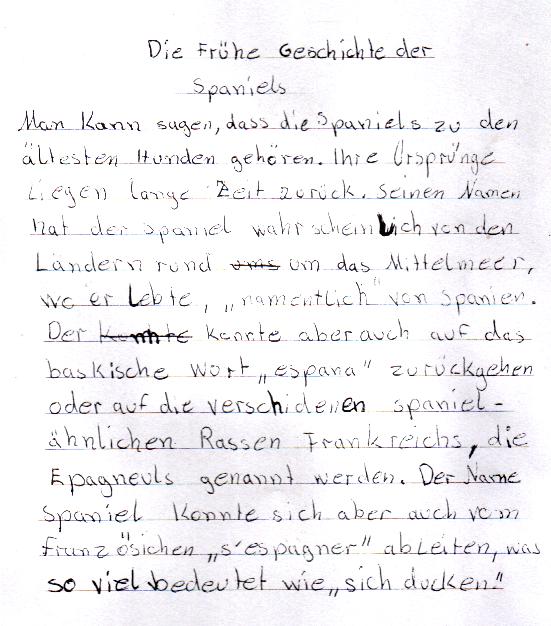 Die Frühe Geschichte der
Spaniels
Man Kann sagen, dass die Spaniels zu den
ältesten Hunden gehören. Ihre Ursprünge
Liegen lange Zeit zurück. Seinen Namen
hat der Spaniel wahrscheinlich von den
Ländern rund ums um das Mittelmeer,
wo er Lebte, „namentlich" von Spanien.
Der Konnte konnte aber auch auf das
baskische Wort „espana" zurückgehen
oder auf die verschidenen spaniel-
ähnlichen Rassen Frankreichs, die
Epagneuls genannt werden. Der Name
Spaniel Konnte sich aber auch vom
französichen „s'espagner" abLeiten, was
so viel bedeutet wie „sich ducken."